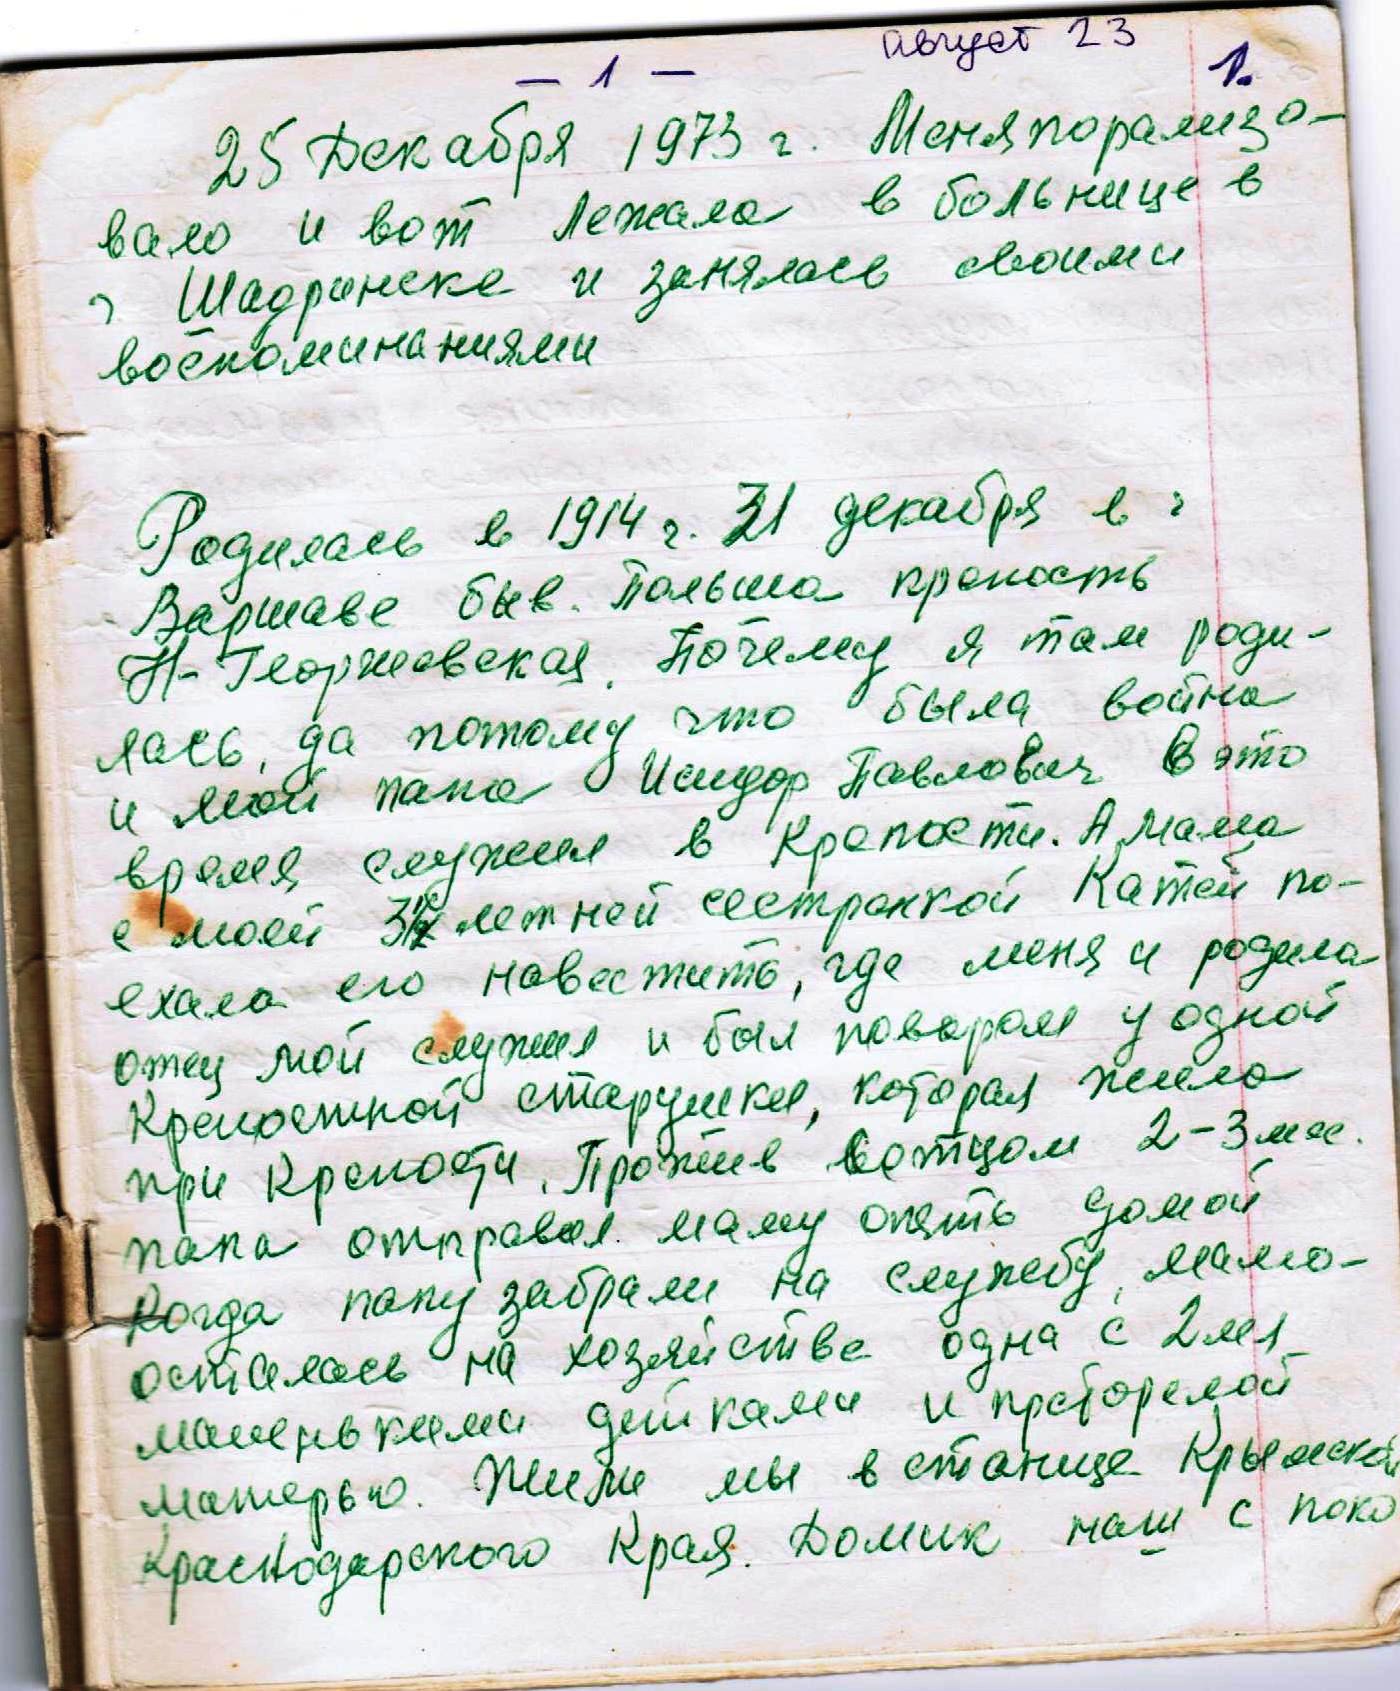 август 23
– 1 –
1.
25 Декабря 1973 г. Меня порализо-
вало и вот лежала в больнице в
г. Шадринске и занялась своими
воспоминаниями
Родилась в 1914 г. 31 декабря в г
Варшаве быв. Польша крепость
Н-Георгиевская. Почему я там роди-
лась, да потому что была война
и мой папа Исидор Павлович в это
время служил в Крепости. А мама
с моей 3½ летней сестренкой Катей по-
ехала его навестить, где меня и родила
отец мой служил и был поваром у одной
Крепостной старушки, которая жила
при Крепости. Прожив с отцом 2-3 мес.
папа отправил маму опять домой
Когда папу забрали на службу, мама-
осталась на хозяйстве одна с 2мя
маленькими детками и престорелой
матерью. Жили мы в станице Крымской
Краснодарского Края. Домик наш с поко